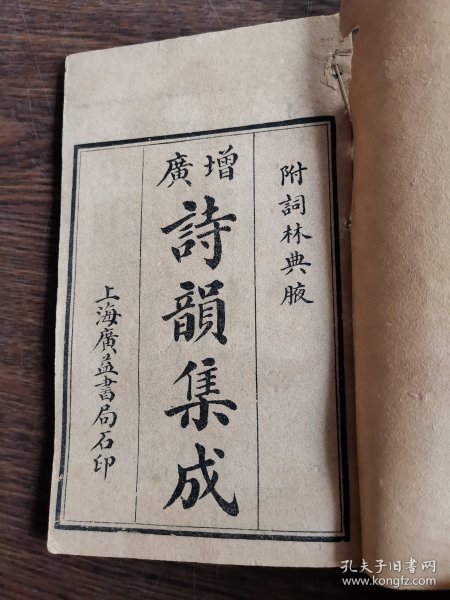 附詞林典腋
增廣
詩韻集成
上海廣益書局石印
孔夫子旧书网
www.kongfz.com